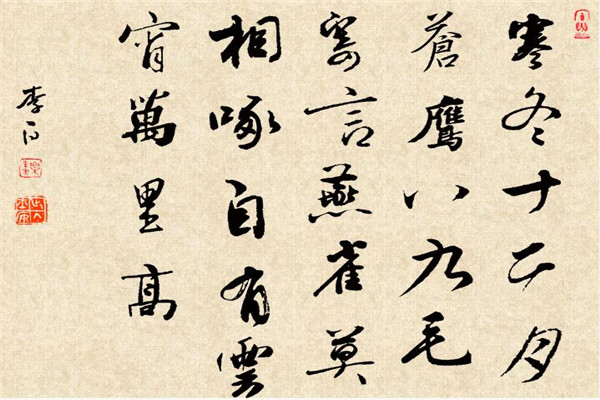 寒冬十二月
蒼鷹八九毛
寄言燕雀莫
相啄自有雲
宵萬里高
李白